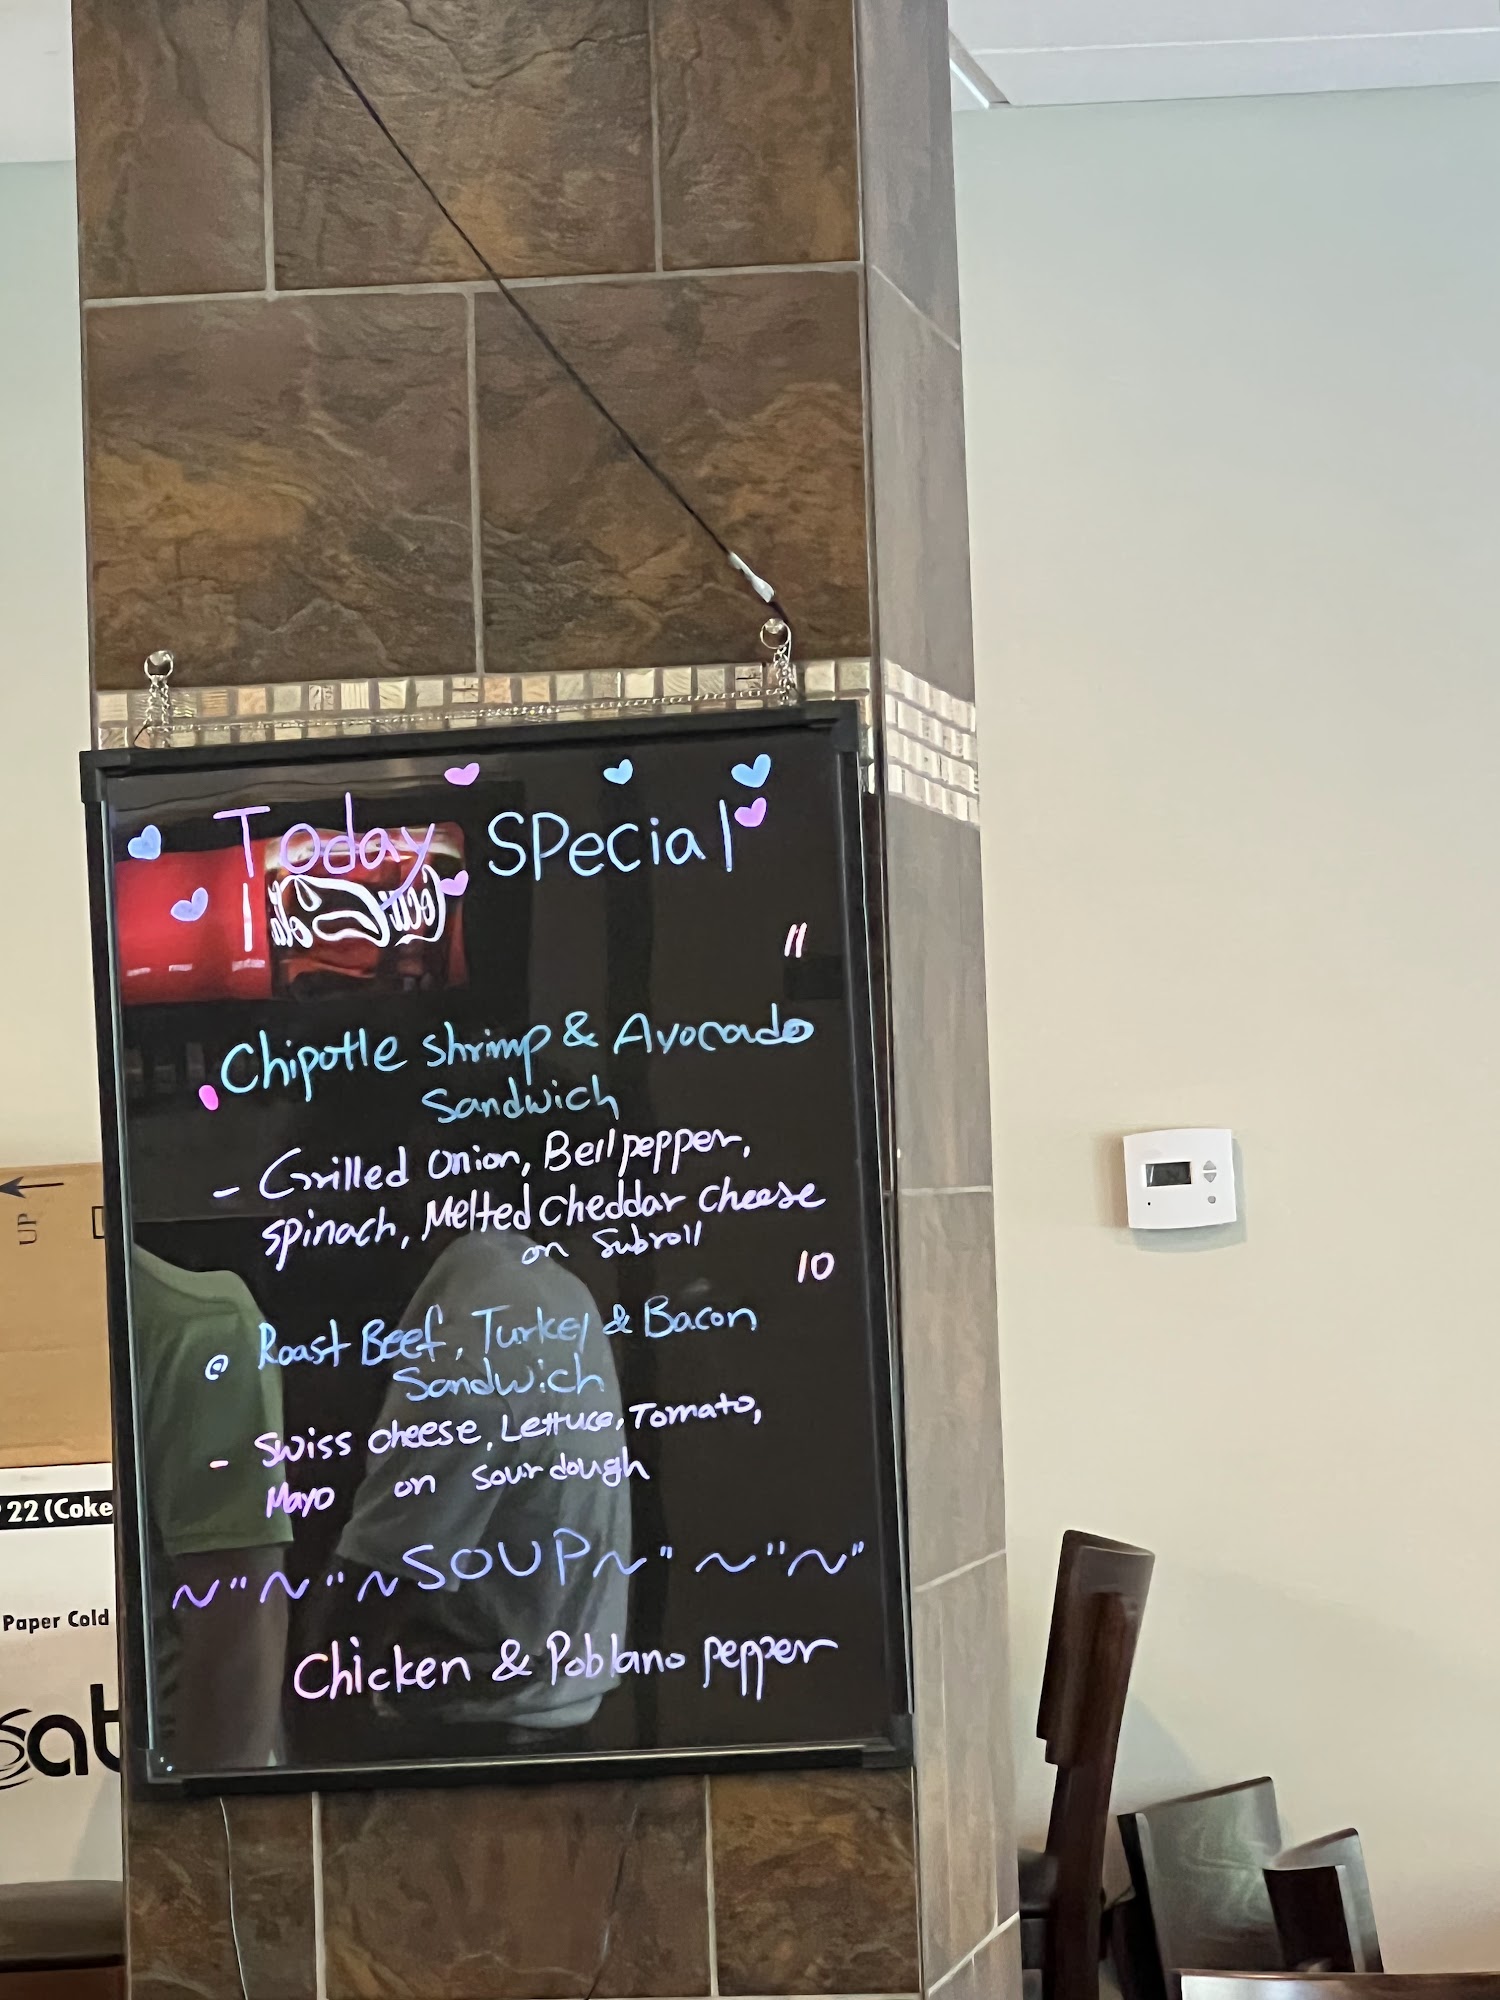 Today Special
11
Chipotle shrimp & Avocado
Sandwich
- Grilled onion, Bell pepper,
spinach, Melted Cheddar cheese
on Subroll
10
Roast Beef, Turkey & Bacon
Sandwich
- Swiss cheese, Lettuce, Tomato,
Mayo on sourdough
~"~"~SOUP~"~"~"
Chicken & Poblano pepper
UP
22 (Coke
Paper Cold
at